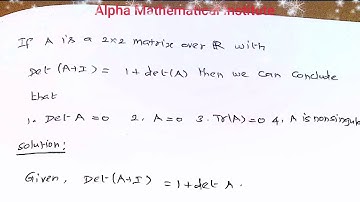 Alpha Mathematical Institute
If A is a 2x2 matrix over ℝ with
Det (A+I) = 1+det(A) then we can conclude
that
1. Det A=0 2. A=0 3. Tr(A)=0 4. A is nonsingul
Solution:
Given, Det(A+I) = 1+det A.